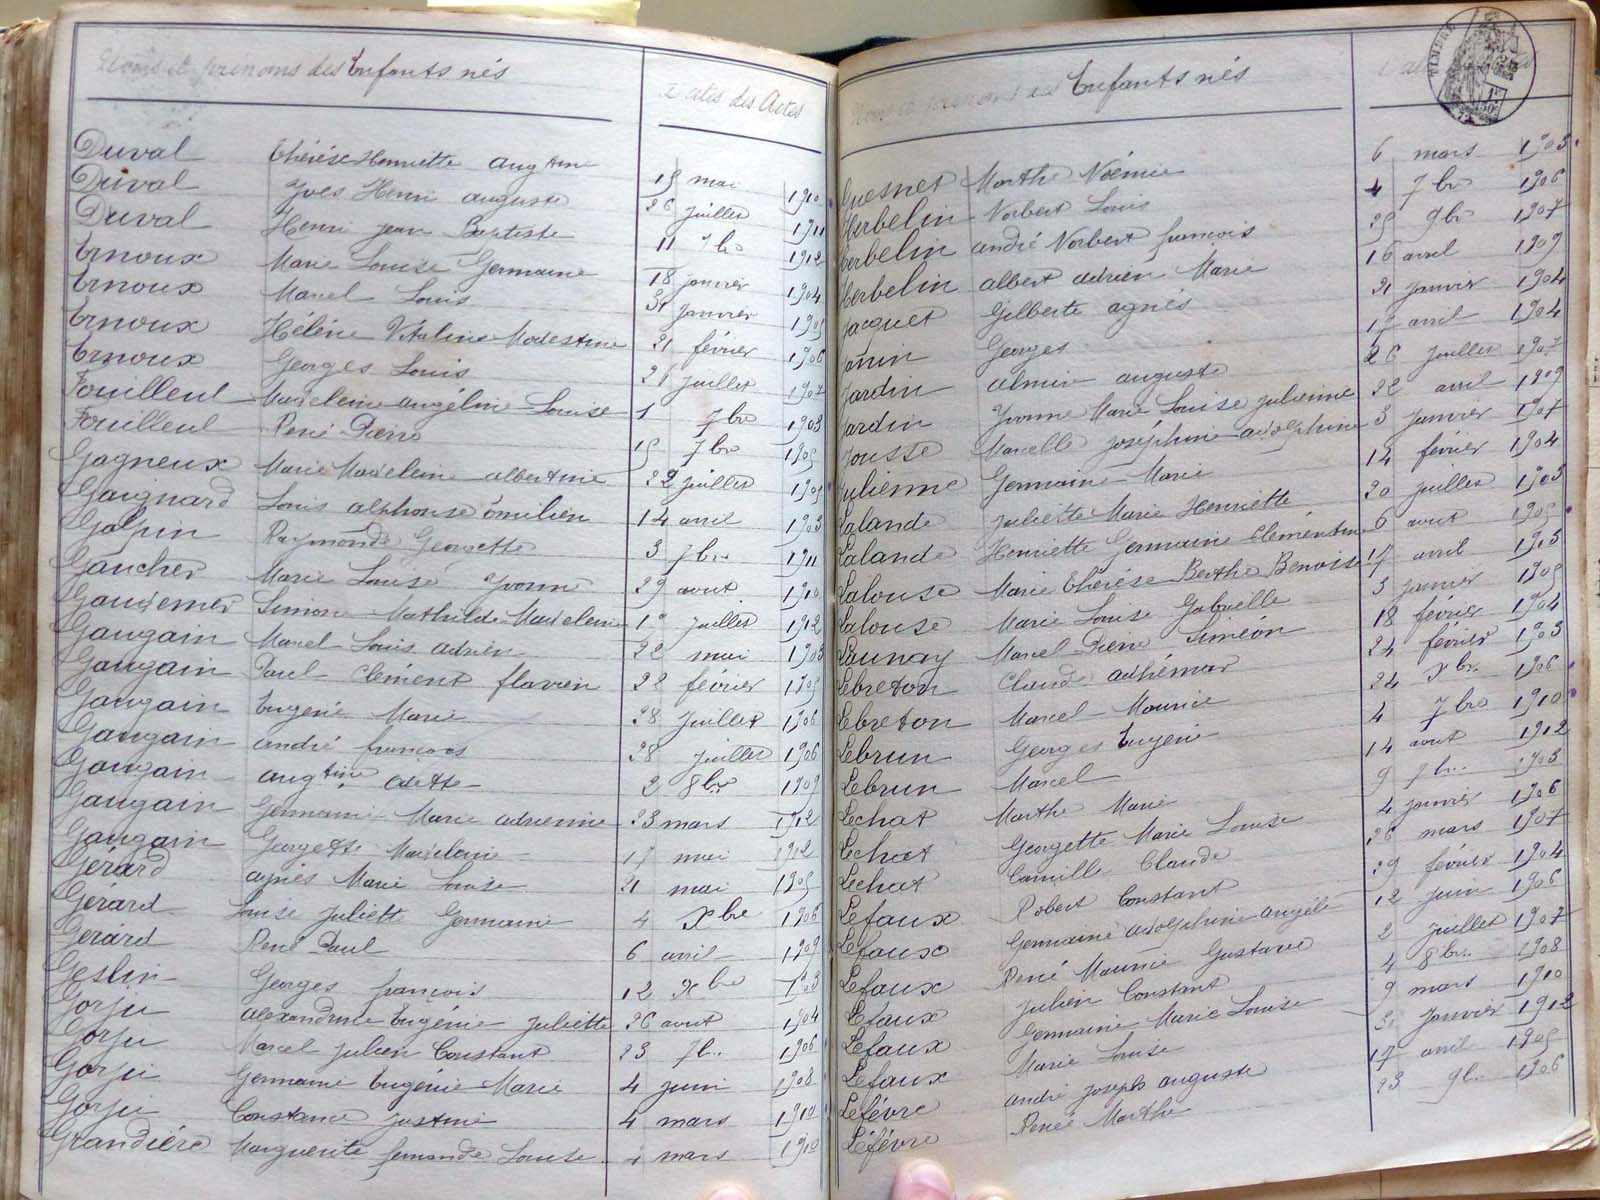 Noms et prénoms des Enfants nés
Dates des Actes
Duval Thérèse Henriette Augtine 15 mai 1910
Duval Yves Henri auguste 26 juillet 1911
Duval Henri jean Baptiste 11 7bre 1912
Ernoux Marie Louise Germaine 18 janvier 1904
Ernoux Marcel Louis 31 janvier 1905
Ernoux Hélène Vitaline Modestine 21 février 1906
Ernoux Georges Louis 26 juillet 1907
Fouilleul Madeleine angéline Louise 1 7bre 1903
Fouilleul René Pierre 15 7bre 1905
Gagneux Marie Madeleine albertine 22 juillet 1905
Gaignard Louis alphonse émilien 14 avril 1903
Galpin Raymonde Georgette 3 7bre 1911
Gaucher Marie Louise Yvonne 29 aout 1910
Gaudemer Simone Mathilde Madeleine 10 juillet 1912
Gaugain Marcel Louis adrien 22 mai 1903
Gaugain Paul Clément flavien 22 février 1905
Gaugain Eugène Marie 28 juillet 1906
Gaugain andré françois 28 juillet 1906
Gaugain augtine odette 2 8bre 1909
Gaugain Germaine Marie adrienne 23 mars 1912
Gaugain Georgette Madeleine 17 mai 1902
Gérard agnès Marie Louise 21 mai 1905
Gérard Louise juliette Germaine 4 Xbre 1906
Gérard René Paul 6 avril 1909
Geslin Georges françois 12 Xbre 1903
Gorju alexandrine Eugénie juliette 26 aout 1904
Gorju Marcel julien Constant 23 7bre 1906
Gorju Germaine Eugénie Marie 4 juin 1908
Gorju Constance justine 4 mars 1910
Grandière Marguerite fernande Louise 4 mars 1910
Noms et prénoms des Enfants nés
TIMBRE
Guesner Marthe Noémie 6 mars 1903
Herbelin Norbert Louis 4 7bre 1906
Herbelin andré Norbert françois 25 9bre 1907
Herbelin albert adrien Marie 16 avril 1909
Jacquet Gilberte agnès 21 janvier 1904
Janin Georges 17 avril 1904
Jardin almire auguste 26 juillet 1907
Jardin Yvonne Marie Louise julienne 22 avril 1909
Jousse Marcelle joséphine adolphine 3 janvier 1907
Julienne Germain Marie 14 février 1904
Lalande juliette Marie Henriette 20 juillet 1903
Lalande Henriette Germaine Clémentine 6 aout 1905
Lalouse Marie Thérèse Berthe Benoise 17 avril 1913
Lalouse Marie Louise Gabrielle 3 janvier 1905
Launay Marcel Pierre Siméon 18 février 1904
Lebreton Claude adhémar 24 février 1903
Lebreton Marcel Maurice 24 Xbre 1906
Lebrun Georges Eugène 4 7bre 1910
Lebrun Marcel 14 aout 1912
Lechat Marthe Marie 9 7bre 1903
Lechat Georgette Marie Louise 4 janvier 1906
Lechat Camille Claude 26 mars 1907
Lefaux Robert Constant 29 février 1904
Lefaux Germaine adolphine angèle 12 juin 1906
Lefaux René Maurice Gustave 2 juillet 1907
Lefaux julien Constant 4 8bre 1908
Lefaux Germaine Marie Louise 9 mars 1910
Lefaux Marie Louise 31 janvier 1912
Lefévre andré joseph auguste 17 avril 1905
Léfévre Renée Marthe 23 9bre 1906